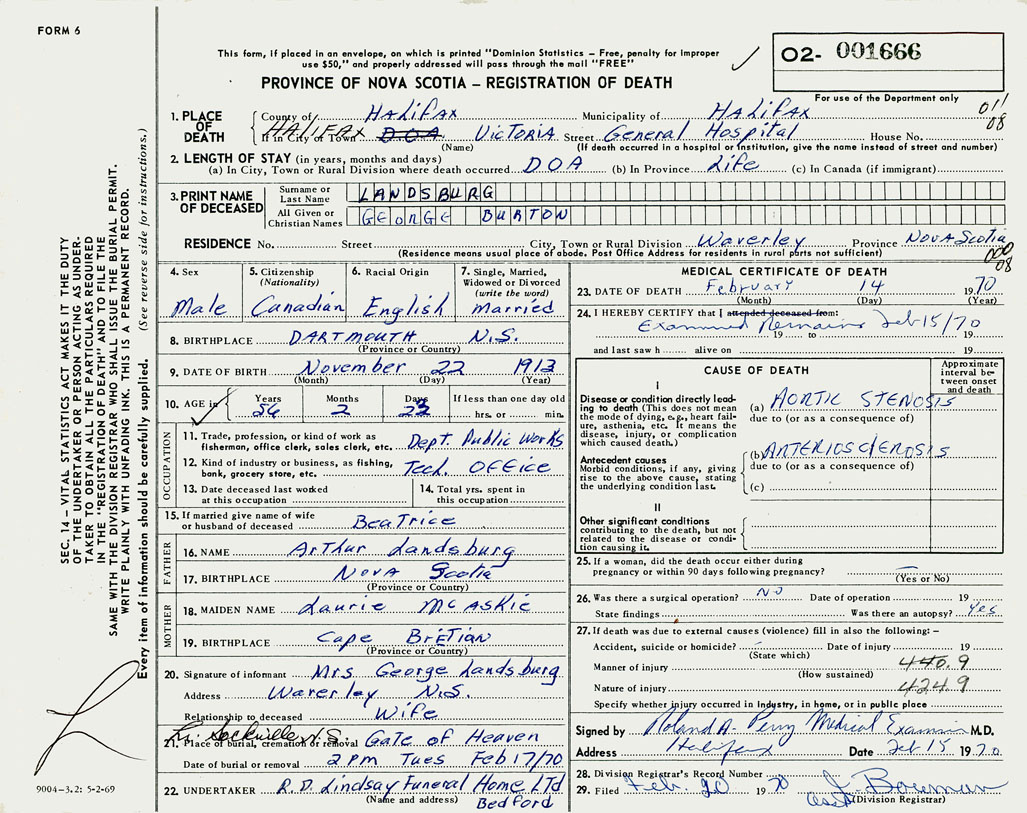 FORM 6
This form, if placed in an envelope, on which is printed "Dominion Statistics – Free, penalty for improper
use $50," and properly addressed will pass through the mail "FREE"
O2- 001666
PROVINCE OF NOVA SCOTIA – REGISTRATION OF DEATH
For use of the Department only
011
08
1. PLACE OF DEATH
County of HALIFAX Municipality of HALIFAX
If in City or Town HALIFAX DOA VICTORIA Street General Hospital House No.
(Name) (If death occurred in a hospital or institution, give the name instead of street and number)
2. LENGTH OF STAY (in years, months and days)
(a) In City, Town or Rural Division where death occurred DOA (b) In Province Life (c) In Canada (if immigrant)
3. PRINT NAME OF DECEASED
Surname or Last Name LANDSBURG
All Given or Christian Names GEORGE BURTON
RESIDENCE No. Street City, Town or Rural Division Waverley Province NOVA Scotia
(Residence means usual place of abode. Post Office Address for residents in rural parts not sufficient)
000
08
4. Sex Male
5. Citizenship (Nationality) Canadian
6. Racial Origin English
7. Single, Married, Widowed or Divorced (write the word) married
8. BIRTHPLACE DARTMOUTH N.S.
(Province or Country)
9. DATE OF BIRTH November 22 1913
(Month) (Day) (Year)
10. AGE in Years 56 Months 2 Days 23 If less than one day old hrs. or min.
OCCUPATION
11. Trade, profession, or kind of work as fisherman, office clerk, sales clerk, etc. Dept. Public Works
12. Kind of industry or business, as fishing, bank, grocery store, etc. Tech. Office
13. Date deceased last worked at this occupation
14. Total yrs. spent in this occupation
15. If married give name of wife or husband of deceased Beatrice
FATHER
16. NAME Arthur Landsburg
17. BIRTHPLACE Nova Scotia
(Province or Country)
MOTHER
18. MAIDEN NAME Laurie McAskie
19. BIRTHPLACE Cape BreTian
(Province or Country)
20. Signature of informant Mrs George Landsburg
Address Waverley N.S.
Relationship to deceased Wife
21. Place of burial, cremation or removal Lr. Sackville N.S. Gate of Heaven
Date of burial or removal 2 PM Tues Feb 17/70
22. UNDERTAKER R.D. Lindsay Funeral Home LTd
(Name and address) Bedford
MEDICAL CERTIFICATE OF DEATH
23. DATE OF DEATH February 14 1970
(Month) (Day) (Year)
24. I HEREBY CERTIFY that I attended deceased from:
Examined Remains Feb 15/70
19 to 19
and last saw h alive on 19
CAUSE OF DEATH
Approximate interval between onset and death
I
Disease or condition directly leading to death (This does not mean the mode of dying, e.g., heart failure, asthenia, etc. It means the disease, injury, or complication which caused death.)
(a) AORTIC STENOSIS
due to (or as a consequence of)
Antecedent causes
Morbid conditions, if any, giving rise to the above cause, stating the underlying condition last.
(b) ARTERIOSCLEROSIS
due to (or as a consequence of)
(c)
II
Other significant conditions
contributing to the death, but not related to the disease or condition causing it.
25. If a woman, did the death occur either during pregnancy or within 90 days following pregnancy? –
(Yes or No)
26. Was there a surgical operation? NO Date of operation 19
State findings Was there an autopsy? Yes
27. If death was due to external causes (violence) fill in also the following: –
Accident, suicide or homicide? – Date of injury 19
(State which)
Manner of injury 440.9
(How sustained)
Nature of injury 424.9
Specify whether injury occurred in Industry, in home, or in public place
Signed by Roland A. Perry Medical Examiner M.D.
Address Halifax Date Feb 15 1970
28. Division Registrar's Record Number
29. Filed Feb. 20 1970 J. Bowman
(Division Registrar)
SEC. 14 – VITAL STATISTICS ACT MAKES IT THE DUTY
OF THE UNDERTAKER OR PERSON ACTING AS UNDER-
TAKER TO OBTAIN ALL THE PARTICULARS REQUIRED
IN THE "REGISTRATION OF DEATH" AND TO FILE THE
SAME WITH THE DIVISION REGISTRAR WHO SHALL ISSUE THE BURIAL PERMIT.
WRITE PLAINLY WITH UNFADING INK. THIS IS A PERMANENT RECORD.
Every item of information should be carefully supplied. (See reverse side for instructions.)
9004-3.2: 5-2-69